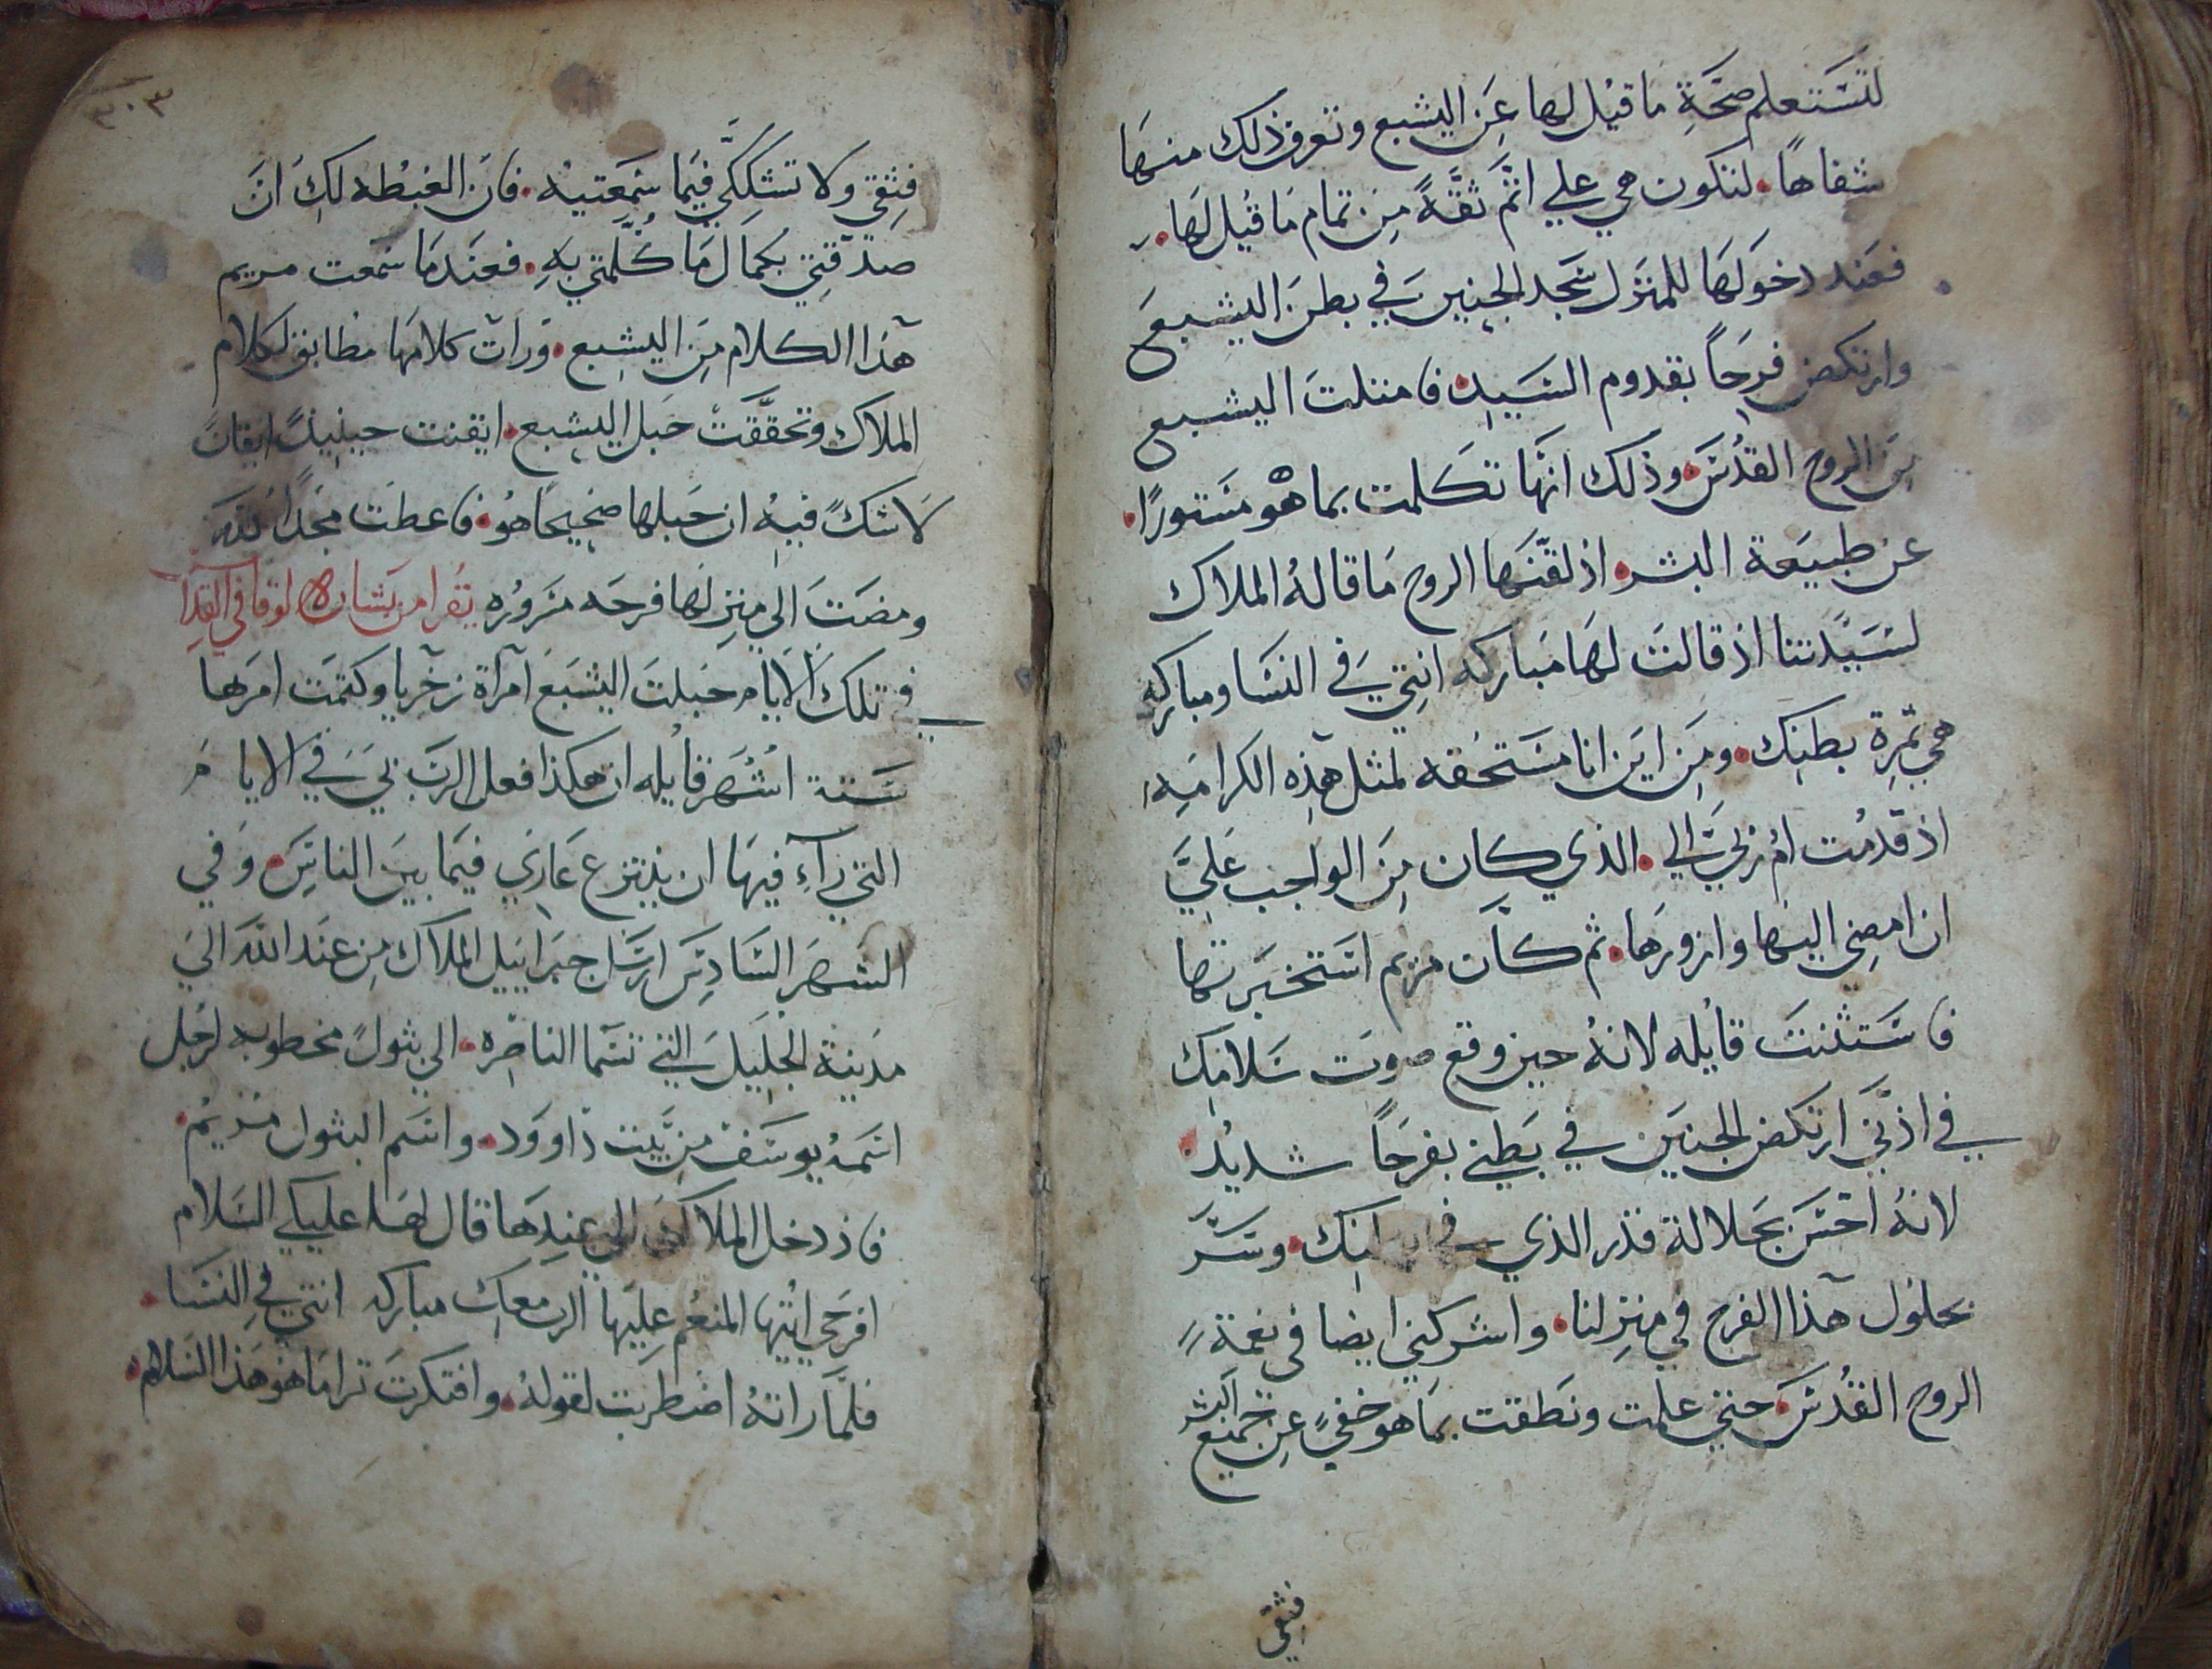 لتستعلم صحة ما قيل لها عن اليشبع وتعرف ذلك منها
شفاهاً. لتكون هي علي اتم ثقةً من تمام ما قيل لها.
فعند دخولها للمنزل سجد الجنين في بطن اليشبع
وارتكض فرحاً بقدوم السيد. فامتلت اليشبع
من الروح القدس. وذلك انها تكلمت بما هو مستوراً.
عن طبيعة البشر. اذ لقنها الروح ما قاله الملاك
لسيدتنا اذ قالت لها مباركه انتي في النسا ومباركه
هي ثمرة بطنك. ومن اين انا مستحقه لمثل هذه الكراميه
اذ قدمت ام ربي الي. الذي كان من الواجب علي
ان امضي اليها وازورها. ثم كان مريم استخبرتها
فاستثنت قايله لانه حين وقع صوت سلامك
في اذني ارتكض الجنين في بطني بفرحاً شديد.
لانه احس بجلالة قدر الذي في بطنك. وسر
بحلول هذا الفرح في منزلنا. واشركني ايضا في نعمة
الروح القدس. حتي علمت ونطقت بما هو خفي عن جميع البشر
فثقي
٣٠٣
فثقي ولا تشككي فيما سمعتيه. فان الغبطه لك ان
صدقتي بكمال ما كُلمتي به. فعندما سمعت مريم
هذا الكلام من اليشبع. ورات كلامها مطابق لكلام
الملاك وتحققت حبل اليشبع. ايقنت حينيذٍ ايقان
لا شك فيه ان حبلها صحيحاً هو. فاعطت مجداً لله
ومضت الي منزلها فرحه مسروره يقرا من بشارة لوقا في القدا
في تلك الايام حبلت اليشبع امراة زخريا وكتمت امرها
ستة اشهر قايله ان هكذا فعل الرب بي في الايام
التي راء فيها ان ينتزع عاري فيما بين الناس. وفي
الشهر السادس ارسل جبراييل الملاك من عند الله الي
مدينة الجليل التي تسما الناصره. الي بثولً مخطوبه لرجل
اسمه يوسف من بيت داوود. واسم البثول مريم.
فاذ دخل الملاك الي عندها قال لها عليكي السلام
افرحي ايتها المنعم عليها الرب معك مباركه انتي في النسا.
فلما راته اضطربت لقوله. وافتكرت ترا ما هو هذا السلام.